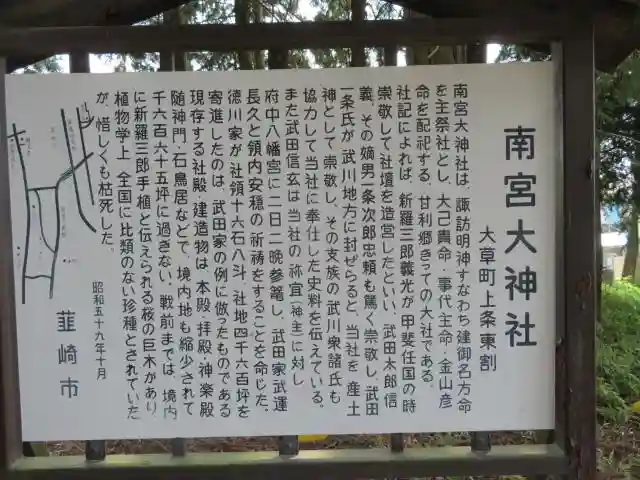 南宮大神社
大草町上条東割
南宮大神社は、諏訪明神すなわち建御名方命
を主祭社とし、大己貴命・事代主命・金山彦
命を配祀する、甘利郷きっての大社である。
社記によれば、新羅三郎義光が甲斐任国の時
崇敬して社壇を造営したといい、武田太郎信
義、その嫡男一条次郎忠頼も篤く崇敬し、武田
一条氏が武川地方に封ぜらると、当社を産土
神として崇敬し、その支族の武川衆諸氏も
協力して当社に奉仕した史料を伝えている。
また武田信玄は当社の祢宜(神主)に対し
府中八幡宮に二日二晩参篭し、武田家武運
長久と領内安穏の祈祷をすることを命じた。
徳川家が社領十六石八斗、社地四千六百坪を
寄進したのは、武田家の例に倣ったものである
現存する社殿・建造物は本殿・拝殿・神楽殿
随神門・石鳥居などで、境内地も縮少されて
千六百六十五坪に過ぎない。戦前までは、境内
に新羅三郎手植と伝えられる桜の巨木があり、
植物学上、全国に比類のない珍種とされていた
が、惜しくも枯死した。
昭和五十九年十月
韮崎市